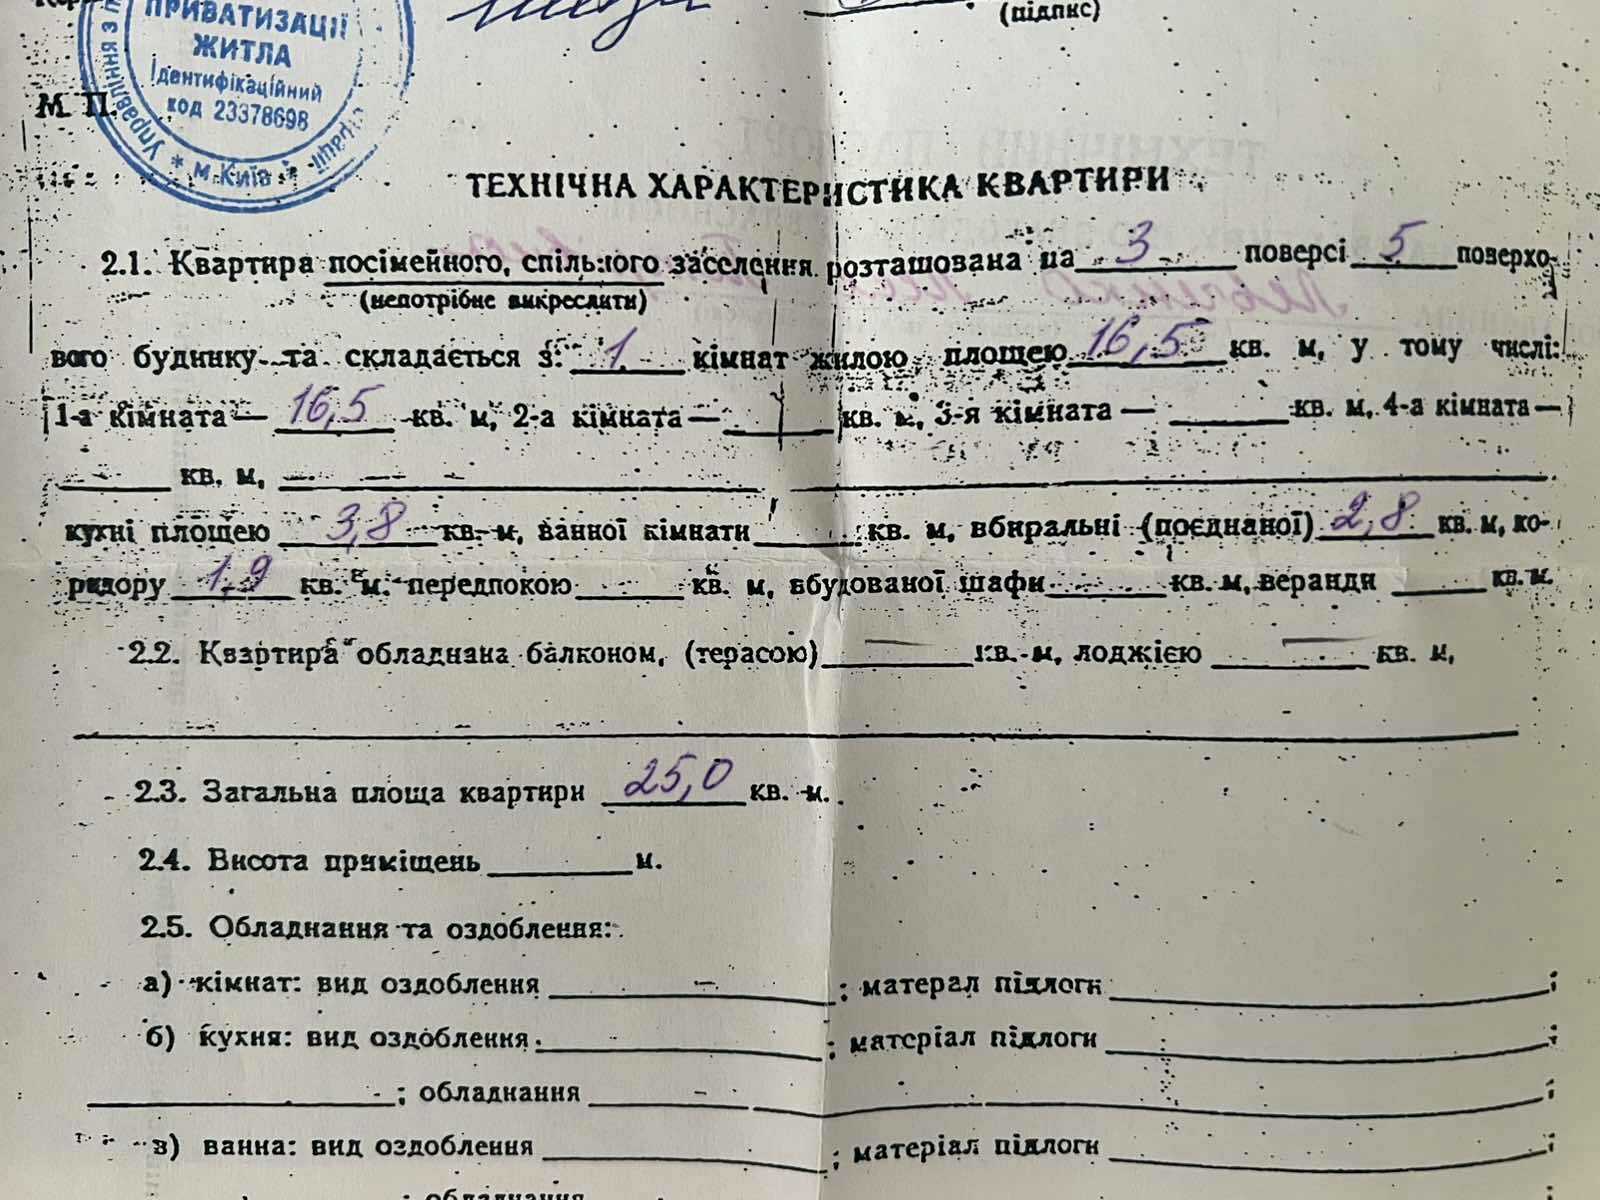 (підпис)
ПРИВАТИЗАЦІЇ
ЖИТЛА
Ідентифікаційний
код 23378698
Управління з
* м.Київ *
М. П.
ТЕХНІЧНА ХАРАКТЕРИСТИКА КВАРТИРИ
2.1. Квартира посімейного, спільного заселення розташована на 3 поверсі 5 поверхо-
(непотрібне викреслити)
вого будинку та складається з: 1 кімнат жилою площею 16,5 кв. м, у тому числі:
1-а кімната — 16,5 кв. м, 2-а кімната — кв. м, 3-я кімната — кв. м, 4-а кімната —
кв. м,
кухні площею 3,8 кв. м, ванної кімнати кв. м, вбиральні (поєднаної) 2,8 кв. м, ко-
ридору 1,9 кв. м. передпокою кв. м, вбудованої шафи кв. м, веранди кв. м.
2.2. Квартира обладнана балконом, (терасою) — кв. м, лоджією — кв. м,
2.3. Загальна площа квартири 25,0 кв. м.
2.4. Висота приміщень м.
2.5. Обладнання та оздоблення:
а) кімнат: вид оздоблення ; матерал підлоги ;
б) кухня: вид оздоблення ; матеріал підлоги ;
; обладнання ;
в) ванна: вид оздоблення ; матеріал підлоги ;
; обладнання